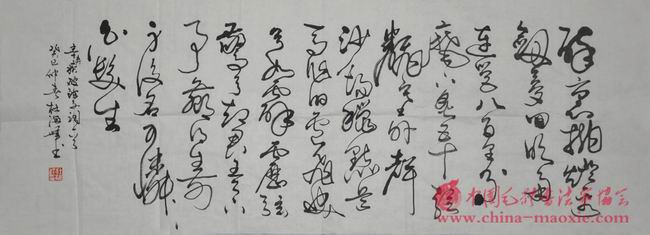 醉里挑灯看
剑梦回吹角
连营八百里分
麾下炙五十弦
翻塞外声
沙场秋点兵
马作的卢飞快
弓如霹雳弦
惊了却君王天下
事赢得生前
身后名可怜
白发生
辛弃疾破阵子词一首
癸巳仲春 书
中国毛体书法家协会
www.china-maoxie.com